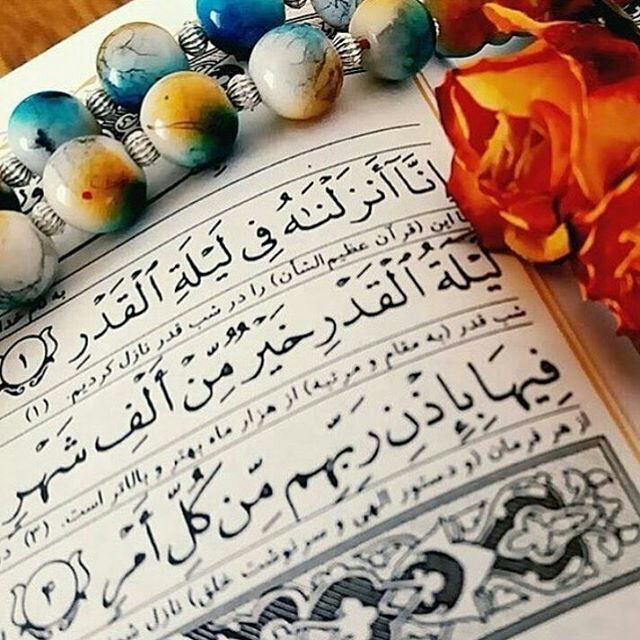 به نام خدا
إِنَّا أَنزَلْنَـٰهُ فِى لَيْلَةِ ٱلْقَدْرِ ١
ما این (قرآن عظیم الشأن) را در شب قدر نازل کردیم. (١)
لَيْلَةُ ٱلْقَدْرِ خَيْرٌ مِّنْ أَلْفِ شَهْرٍ
شب قدر (به مقام و مرتبه) از هزار ماه بهتر و بالاتر است. (٣) در
فِيهَا بِإِذْنِ رَبِّهِم مِّن كُلِّ أَمْرٍ ۴
از هر فرمان (و دستور الهی و سرنوشت خلق) نازل